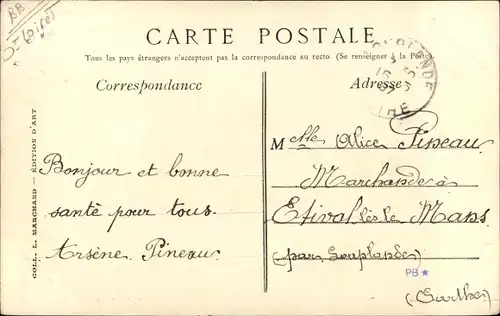 BB
CARTE POSTALE
Tous les pays étrangers n'acceptent pas la correspondance au recto. (Se renseigner à la Poste)
Correspondance
Adresse
COLL. L. MARCHAND — ÉDITION D'ART
Bonjour et bonne
santé pour tous.
Arsène Pineau
Melle Alice Pineau
Marchande à
Etival lès le Mans
(par Souplandes)
PB★
(Sarthe)